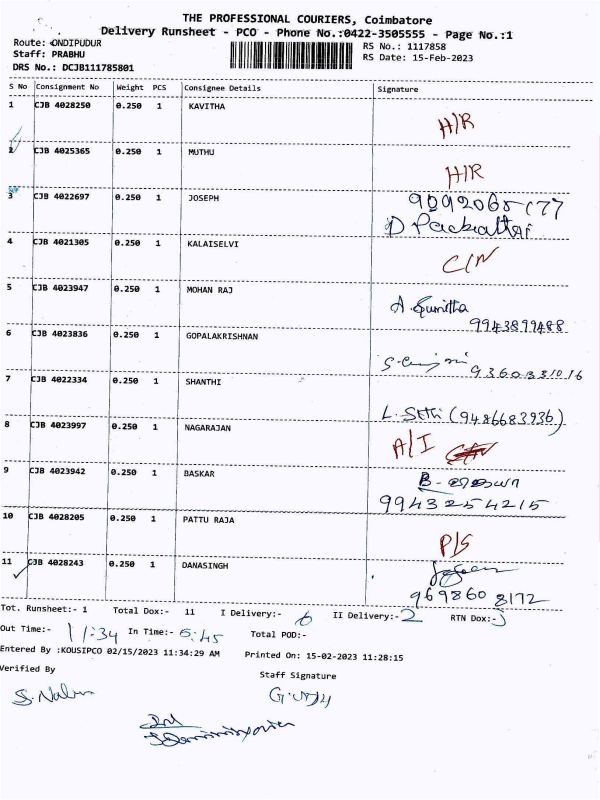 THE PROFESSIONAL COURIERS, Coimbatore
Delivery Runsheet - PCO - Phone No.:0422-3505555 - Page No.:1
Route: ONDIPUDUR RS No.: 1117858
Staff: PRABHU RS Date: 15-Feb-2023
DRS No.: DCJB111785801
S No Consignment No Weight PCS Consignee Details Signature
1 CJB 4028250 0.250 1 KAVITHA H/R
2 CJB 4025365 0.250 1 MUTHU H/R
3 CJB 4022697 0.250 1 JOSEPH
4 CJB 4021305 0.250 1 KALAISELVI C/N
5 CJB 4023947 0.250 1 MOHAN RAJ A. Sumitha
9943899488
6 CJB 4023836 0.250 1 GOPALAKRISHNAN
9360331016
7 CJB 4022334 0.250 1 SHANTHI L. (9486683936)
8 CJB 4023997 0.250 1 NAGARAJAN A/I
9 CJB 4023942 0.250 1 BASKAR B-
9943254215
10 CJB 4028205 0.250 1 PATTU RAJA P/S
11 CJB 4028243 0.250 1 DANASINGH
969860 8172
Tot. Runsheet:- 1 Total Dox:- 11 I Delivery:- 6 II Delivery:- 2 RTN Dox:-
Out Time:- 11:34 In Time:- 6:45 Total POD:-
Entered By :KOUSIPCO 02/15/2023 11:34:29 AM Printed On: 15-02-2023 11:28:15
Verified By Staff Signature